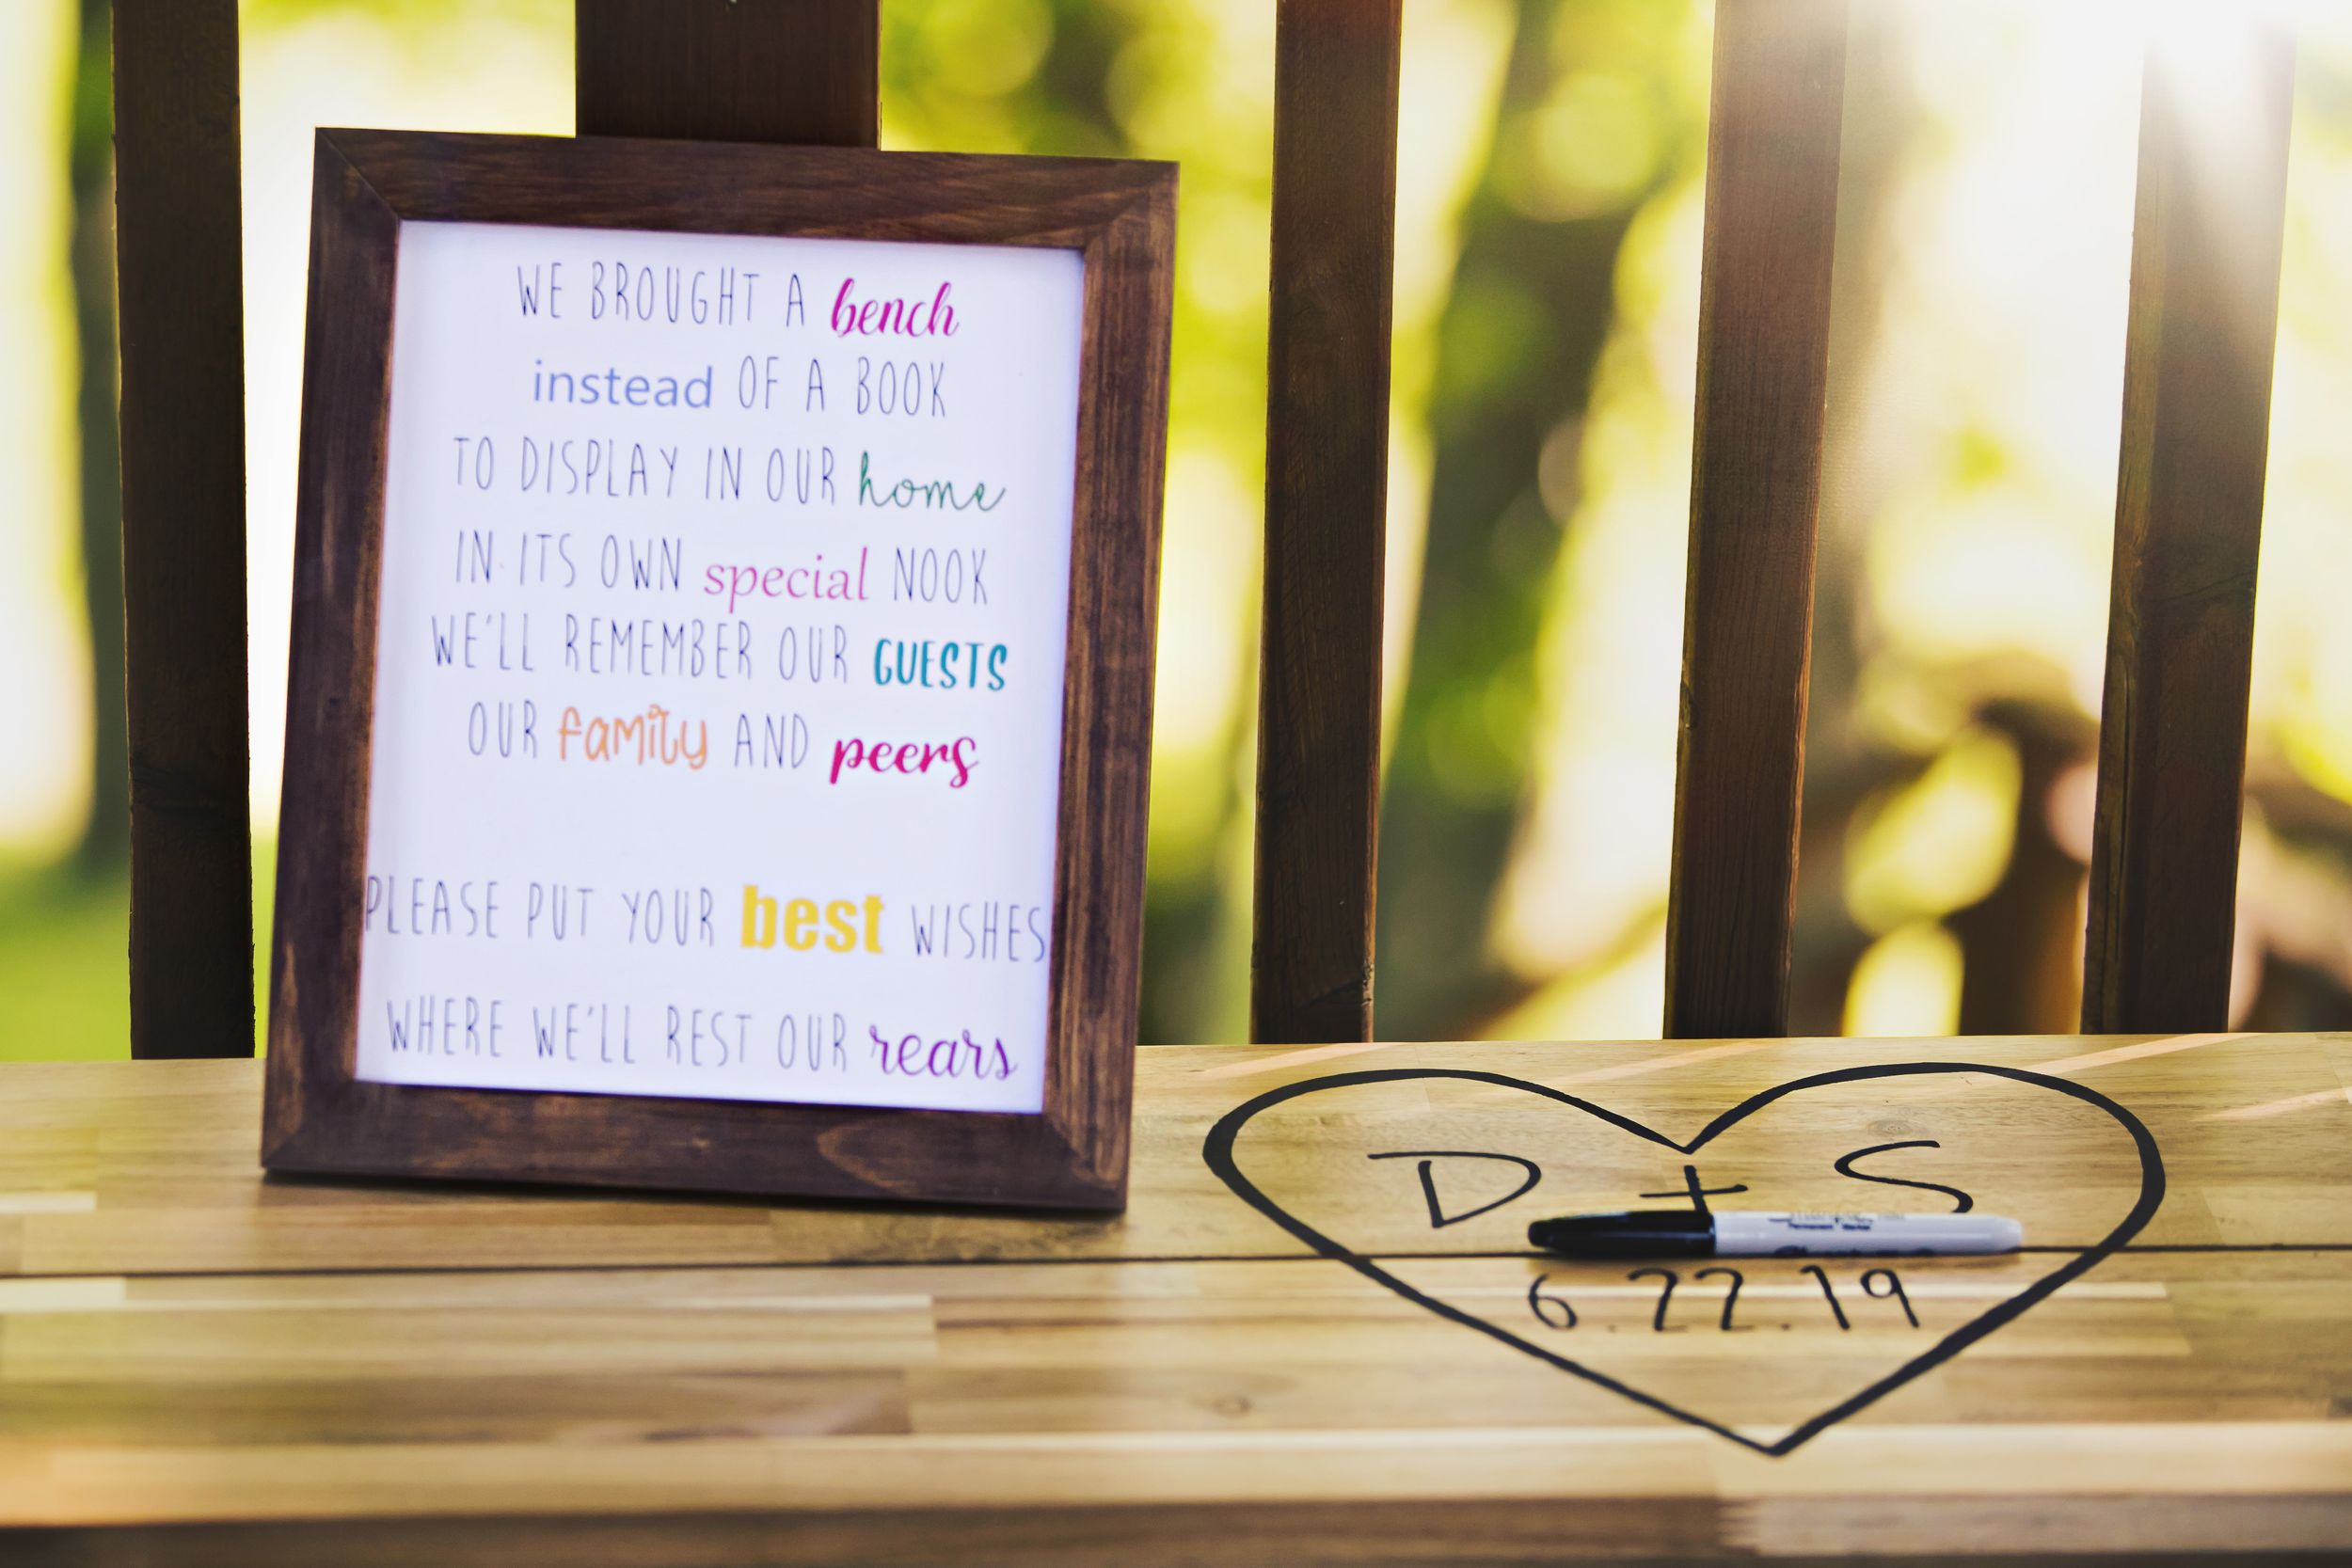 WE BROUGHT A bench
instead OF A BOOK
TO DISPLAY IN OUR home
IN ITS OWN special NOOK
WE'LL REMEMBER OUR GUESTS
OUR family AND peers
PLEASE PUT YOUR best WISHES
WHERE WE'LL REST OUR rears
D + S
6.22.19